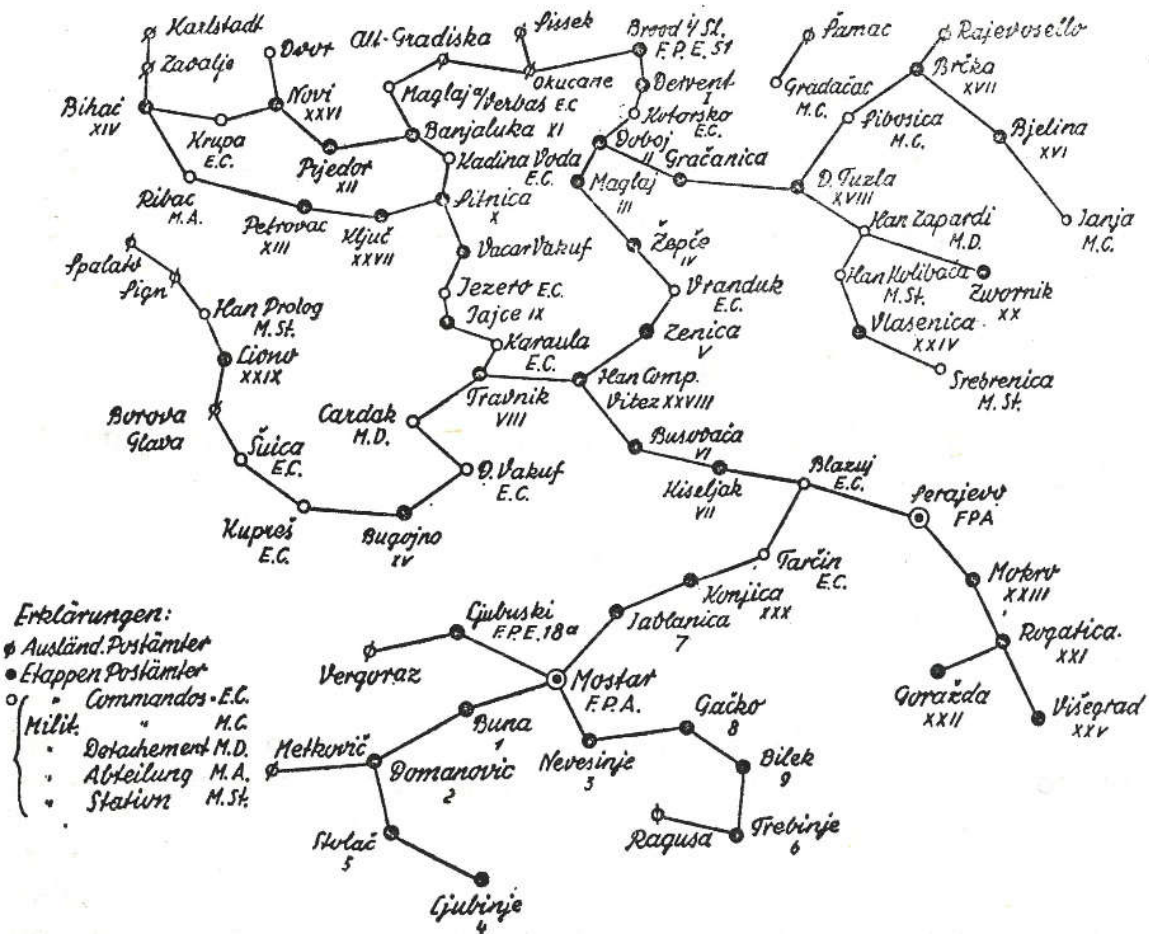 Karlstadt
Zavalje
Dvor
Bihać
XIV
Krupa
E.C.
Novi
XXVI
Prjedor
XII
Ribac
M.A.
Petrovac
XIII
Ključ
XXVII
Alt-Gradiska
Sissek
Okucane
Brood i/Sl.
F.P.E. 51
Maglaj a/
Verbas E.C
Banjaluka XI
Kadina Voda
E.C.
Sitnica
X
Vacar Vakuf
Jezero E.C.
Jajce IX
Karaula
E.C.
Travnik
VIII
Dervent
I
Kotorsko
E.C.
Doboj
II
Gračanica
Maglaj
III
Žepče
IV
Vranduk
E.C.
Zenica
V
Han Comp.
Vitez XXVIII
Šamac
Gradačac
M.C.
Rajevosello
Brčka
XVII
Sibosica
M.C.
Bjelina
XVI
Janja
M.C.
D. Tuzla
XVIII
Han Zapardi
M.D.
Han Kolibača
M.St.
Zwornik
XX
Vlasenica
XXIV
Srebrenica
M.St.
Spalato
Sign
Han Prolog
M.St.
Liono
XXIX
Borova
Glava
Šuica
E.C.
Kupreš
E.C.
Bugojno
XV
D. Vakuf
E.C.
Cardak
M.D.
Busovača
VI
Kiseljak
VII
Blazuj
E.C.
Serajevo
FPA
Tarčin
E.C.
Konjica
XXX
Jablanica
7
Mokro
XXIII
Rogatica.
XXI
Goražda
XXII
Višegrad
XXV
Ljubuski
F.P.E. 18a
Vergoraz
Mostar
F.P.A.
Buna
1
Metkovič
Domanovic
2
Nevesinje
3
Gačko
8
Bilek
9
Trebinje
6
Ragusa
Stolač
5
Ljubinje
4
Erklärungen:
ø Ausländ. Postämter
● Etappen Postämter
○ " Commandos - E.C.
Milit. " M.C.
" Detachement M.D.
" Abteilung M.A.
" Station M.St.